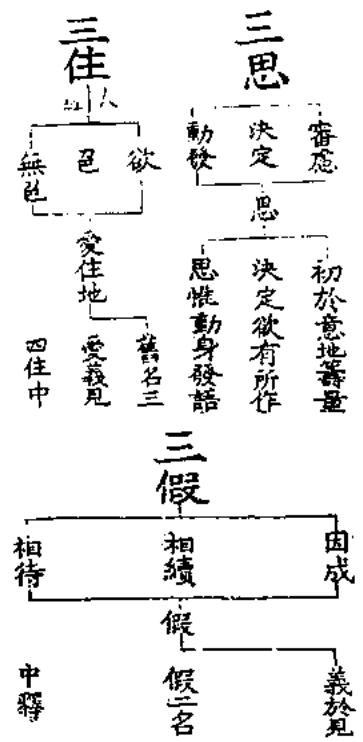 三思
審慮
決定
動發
思
初於意地籌量
決定欲有所作
思惟動身發語
三住
欲
色
無色
愛住地
舊名三
愛義見
四住中
三假
因成
相續
相待
假
義於見
假二名
中釋